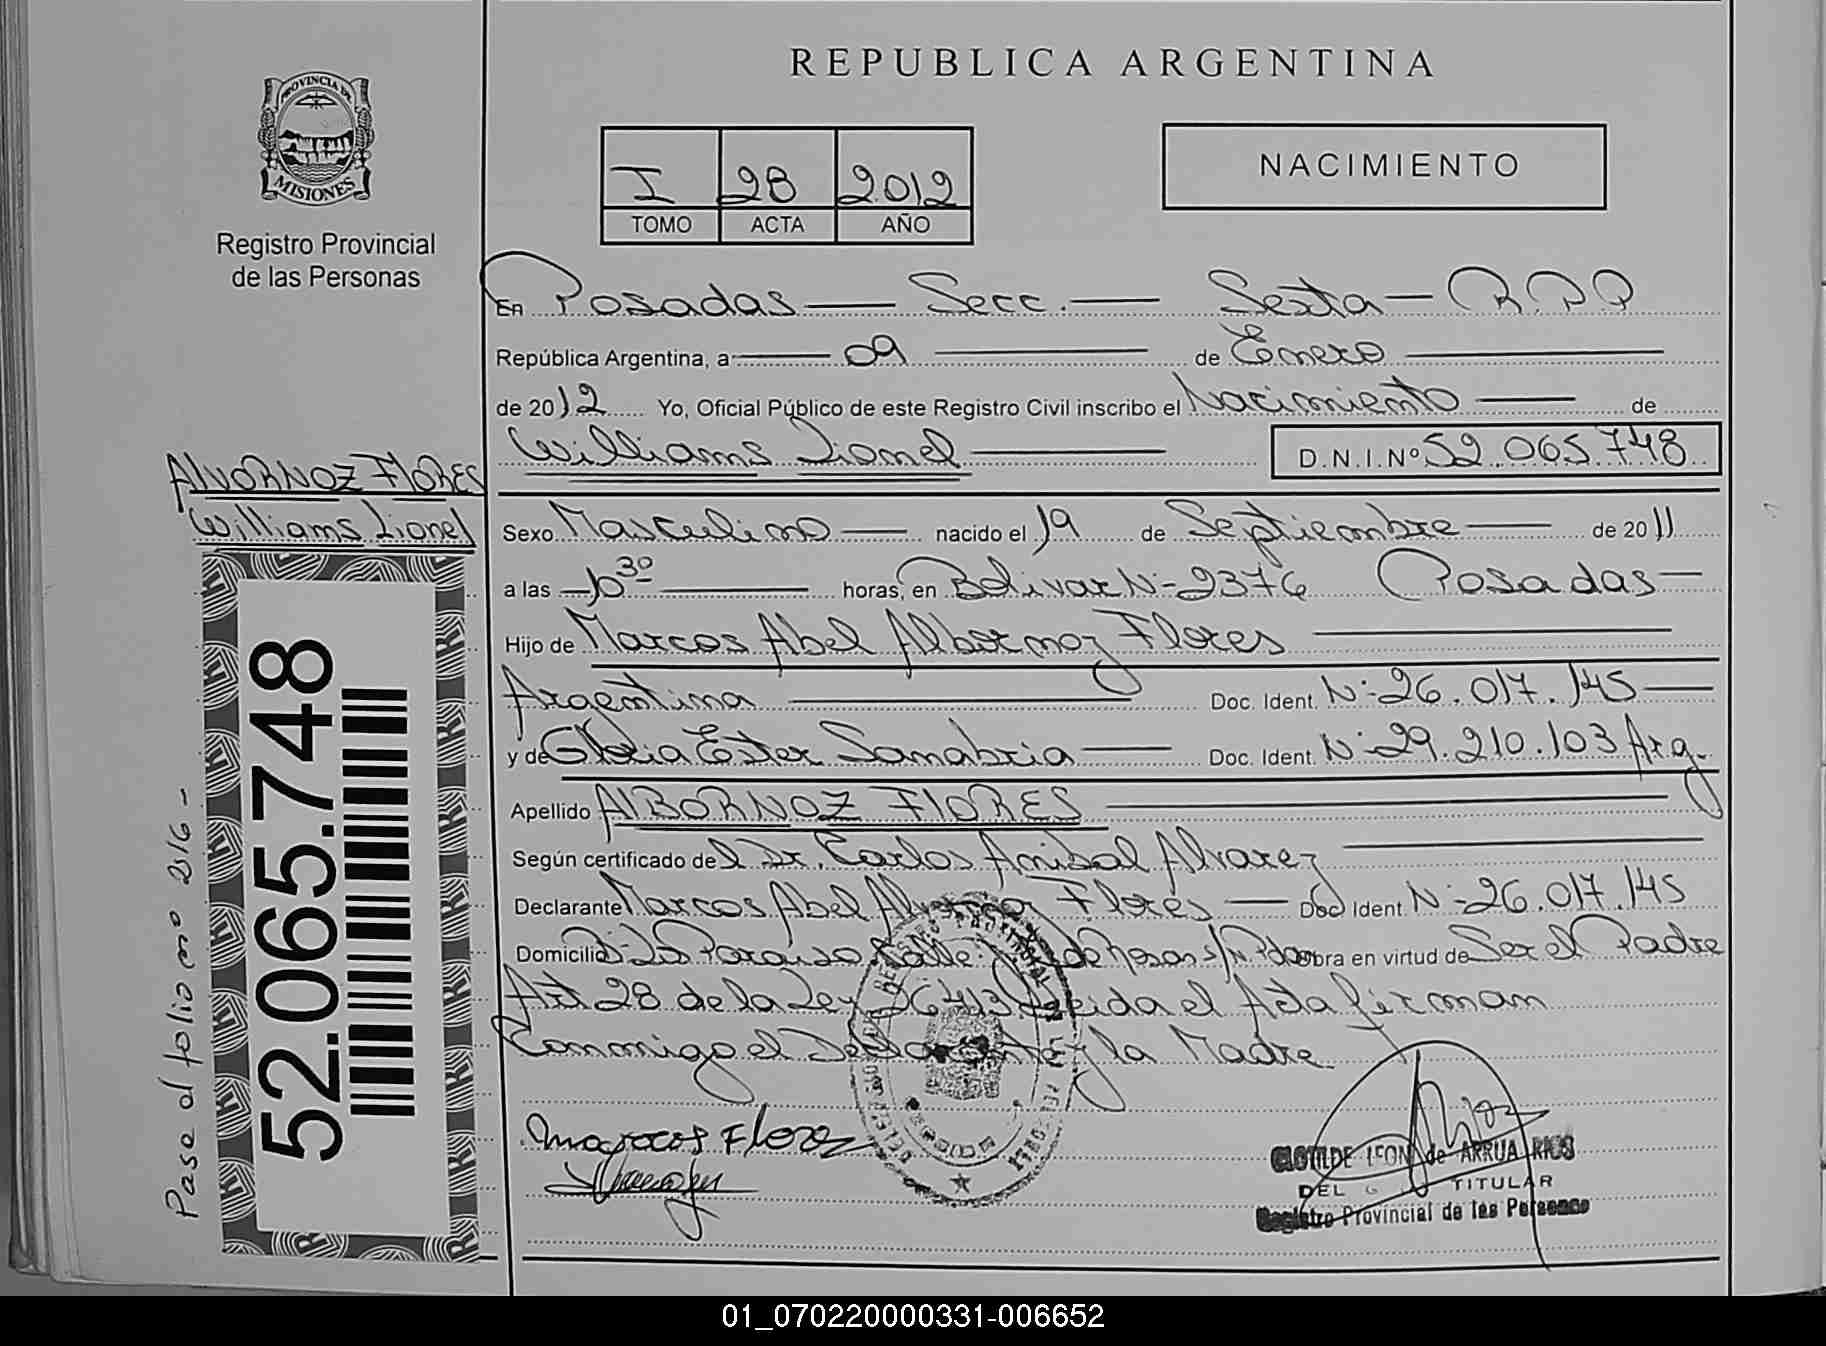 REPUBLICA ARGENTINA
PROVINCIA DE
MISIONES
Registro Provincial
de las Personas
I 28 2012
TOMO ACTA AÑO
NACIMIENTO
En Posadas — Secc. — Sexta — R.P.P
República Argentina, a — 09 — de Enero —
de 2012 Yo, Oficial Público de este Registro Civil inscribo el Nacimiento — de
Williams Lionel — D.N.I.Nº 52.065.748
ALVORNOZ FLORES
Williams Lionel
Sexo Masculino — nacido el 19 de Septiembre — de 2011
a las — 10 30 — horas, en Bolivar Nº 2376 Posadas —
Hijo de Marcos Abel Albornoz Flores —
Argentina — Doc. Ident. Nº 26.017.145 —
y de Gloria Ester Sanabria — Doc. Ident. Nº 29.210.103 Arg.
Apellido ALBORNOZ FLORES —
Según certificado del Dr. Carlos Anibal Alvarez —
Declarante Marcos Abel Flores — Doc Ident. Nº 26.017.145
Domicilio Paraiso Calle: de Rosas s/n Pdas obra en virtud de Ser el Padre
Art 28 de la Ley 26413 Leida el Acta firman
Conmigo el Declarante y la Madre
Marcos Flores
CLOTILDE LEON de ARRUA RIOS
TITULAR
Registro Provincial de las Personas
52.065.748
Pase al folio nº 216 -
01_070220000331-006652